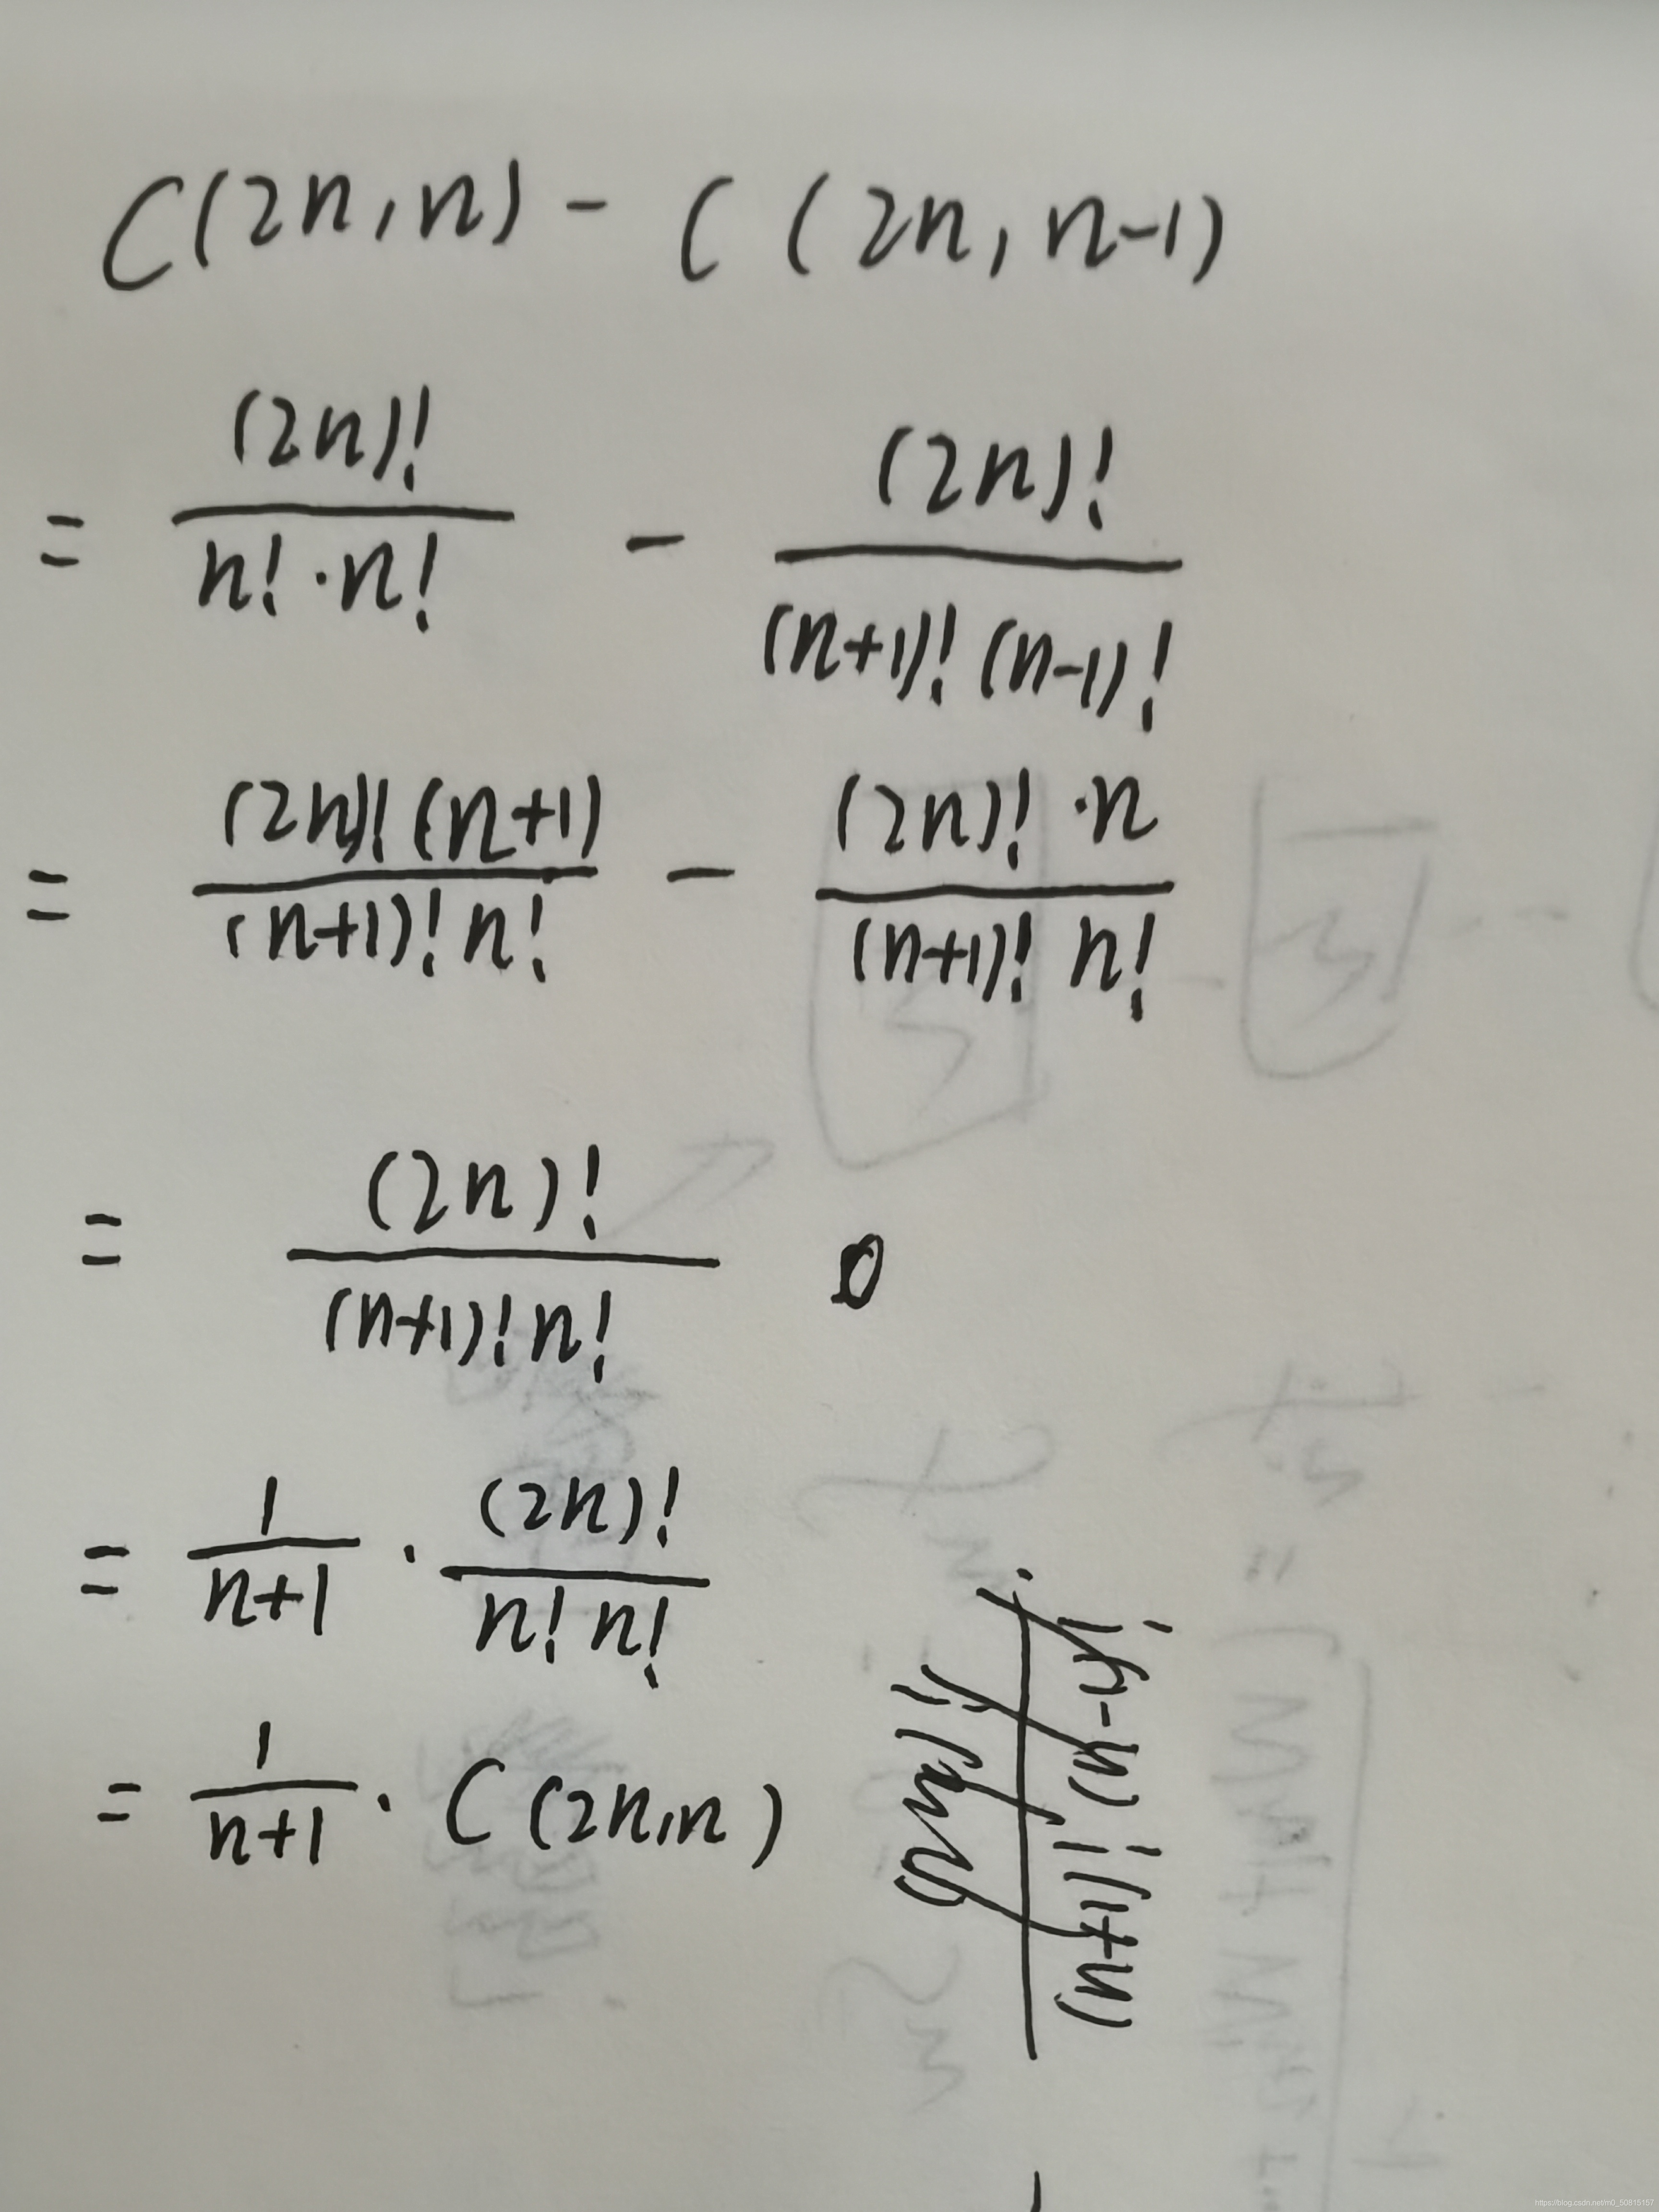 C(2n,n) - C(2n,n-1)
= (2n)!/(n!·n!) - (2n)!/((n+1)!(n-1)!)
= (2n)!(n+1)/((n+1)!n!) - (2n)!·n/((n+1)!n!)
= (2n)!/((n+1)!n!)
= 1/(n+1) · (2n)!/(n!n!)
= 1/(n+1) · C(2n,n)
https://blog.csdn.net/m0_50815157